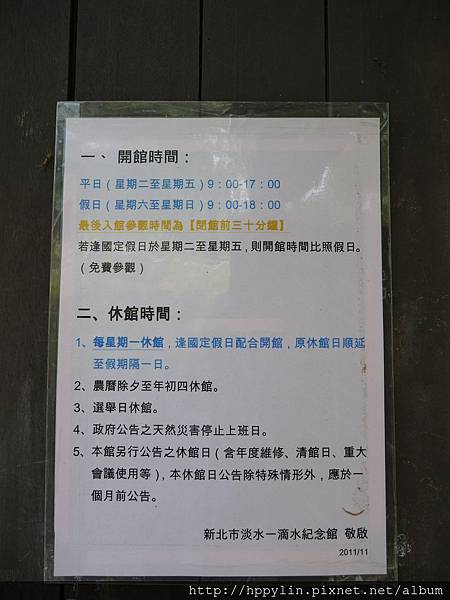 一、 開館時間：
平日（星期二至星期五）9：00-17：00
假日（星期六至星期日）9：00-18：00
最後入館參觀時間為【閉館前三十分鐘】
若逢國定假日於星期二至星期五，則開館時間比照假日。
（免費參觀）
二、休館時間：
1、每星期一休館，逢國定假日配合開館，原休館日順延
至假期隔一日。
2、農曆除夕至年初四休館。
3、選舉日休館。
4、政府公告之天然災害停止上班日。
5、本館另行公告之休館日（含年度維修、清館日、重大
會議使用等），本休館日公告除特殊情形外，應於一
個月前公告。
新北市淡水一滴水紀念館 敬啟
2011/11
http://hppylin.pixnet.net/album